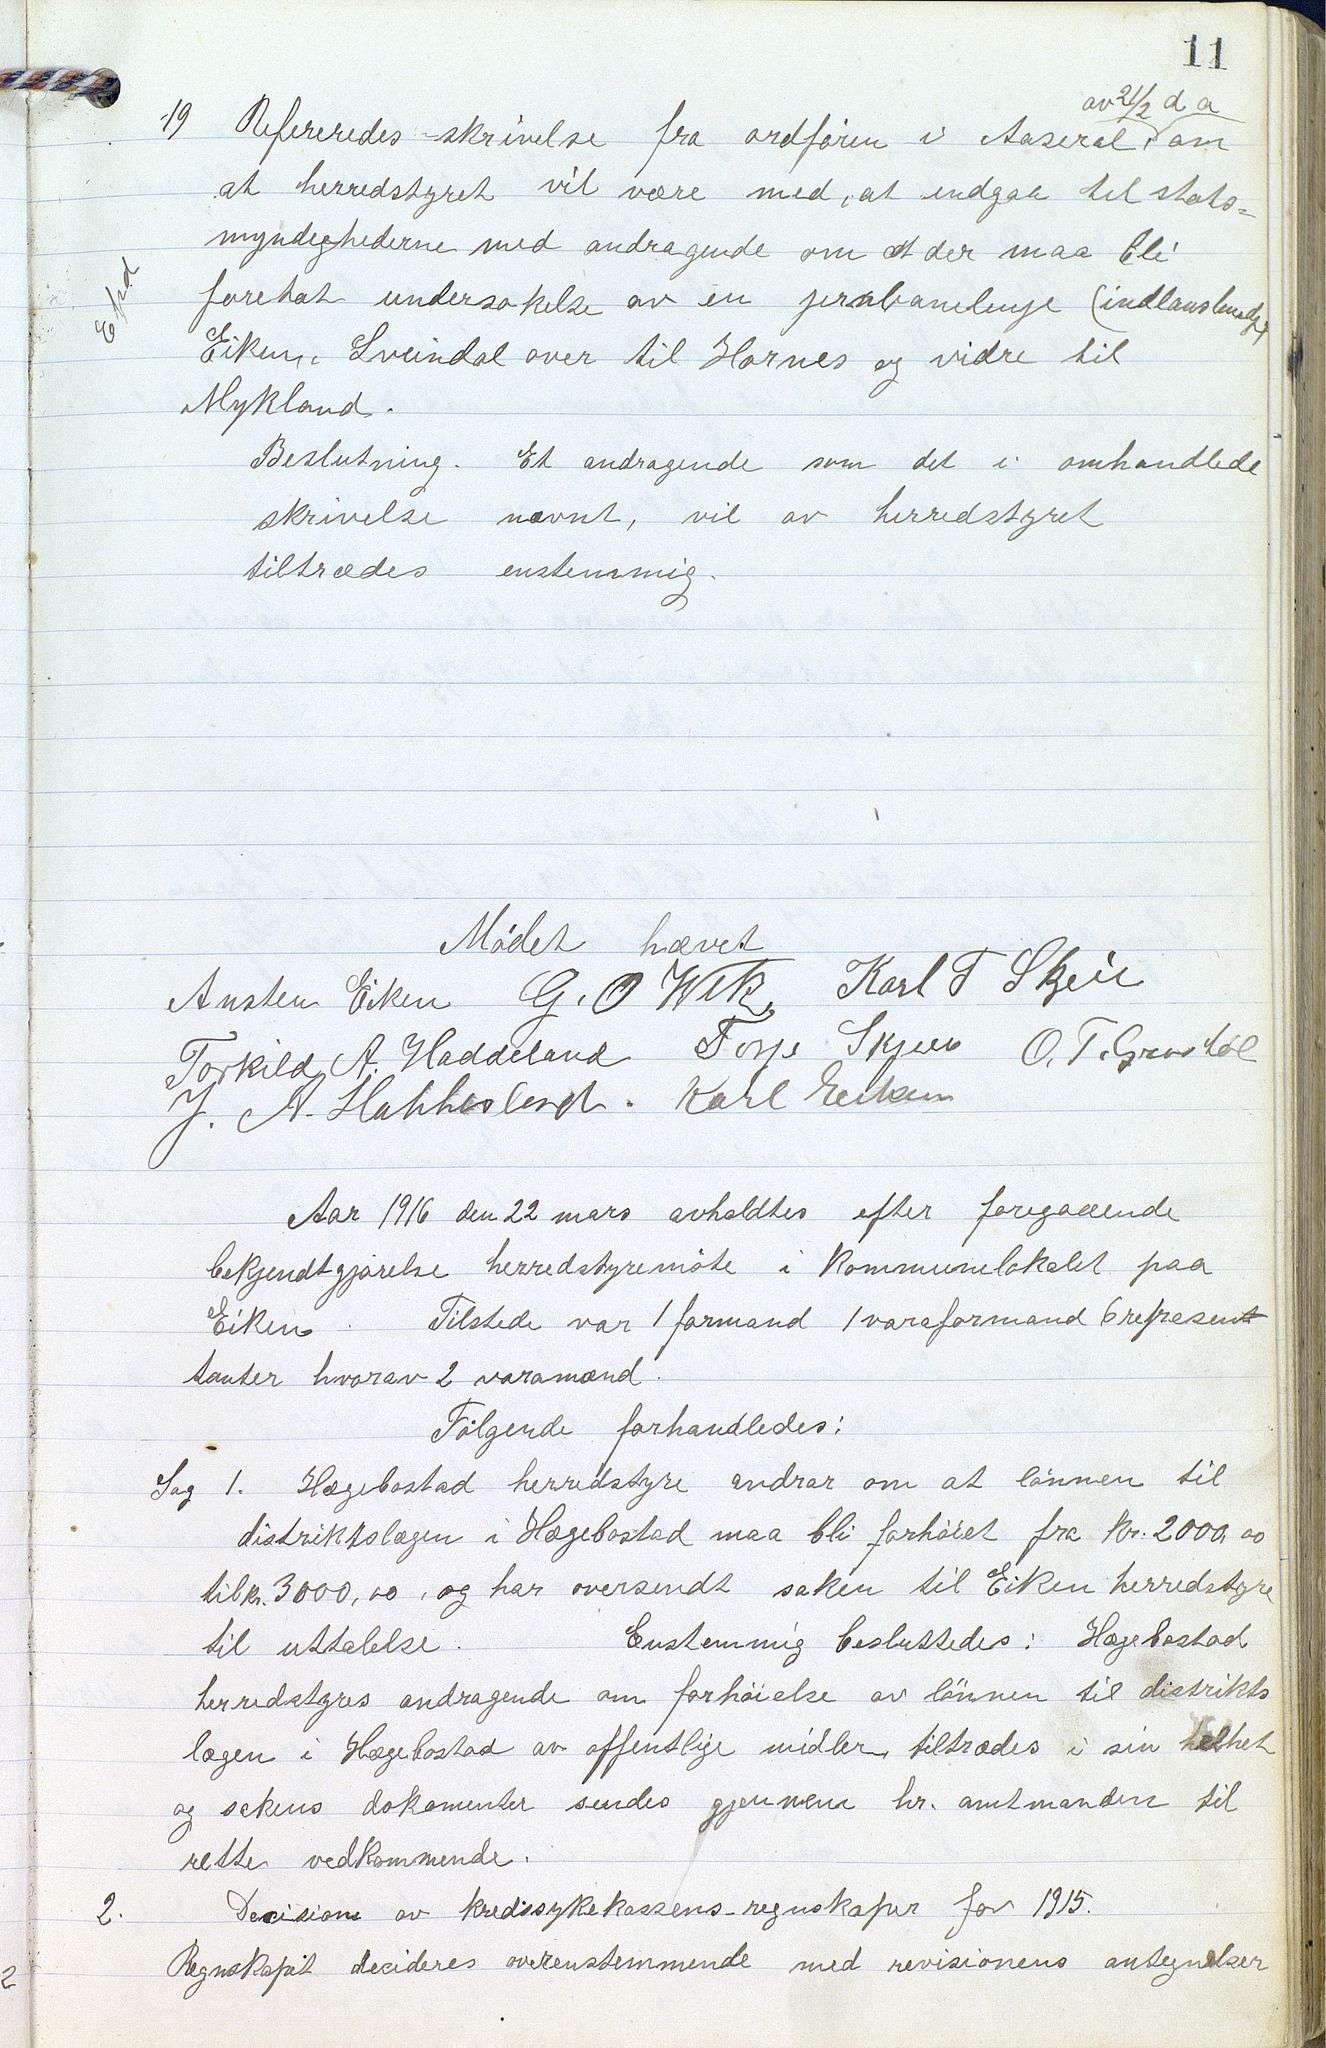 11
av 21/2 d a
19 Refereredes skrivelse fra ordføren i Aaseral, om
at herredstyret vil være med, at indgaa til stats=
myndighederne med andragende om at der maa bli
foretat undersøkelse av en jernbanelinje (indlandslinje)
Exped
Eiken, Sveindal over til Hornes og vidre til
Mykland.
Beslutning. Et andragende som det i omhandlede
skrivelse nævnt, vil av herredstyret
tiltrædes enstemmig.
Mødet hævet
Austen Eiken G. O Vik Karl T Skeie
Torkild A. Haddeland Torje Skjeie O. T. Gravhol
J. A. Hobbesland. Karl Eiken
Aar 1916 den 22 mars avholdtes efter foregaaende
bekjendtgjørelse herredstyremøte i kommunelokalet paa
Eiken. Tilstede var 1 formand 1 varaformand 6 represen
tanter hvorav 2 varamænd.
Følgende forhandledes:
Sag 1. Hægebostad herredstyre andrar om at lønnen til
distriktslægen i Hægebostad maa bli forhøiet fra kr. 2000,00
til kr. 3000,00, og har oversendt saken til Eiken herredstyre
til uttalelse. Enstemmig besluttedes: Hægebostad
herredstyres andragende om forhøielse av lønnen til distrikts
lægen i Hægebostad av offentlige midler, tiltrædes i sin helhet
og sakens dokumenter sendes gjennem hr. amtmanden til
rette vedkommende.
2. Decision av kredssykekassens-regnskaper for 1915.
Regnskapet decideres overenstemmende med revisionens antegnelser
2